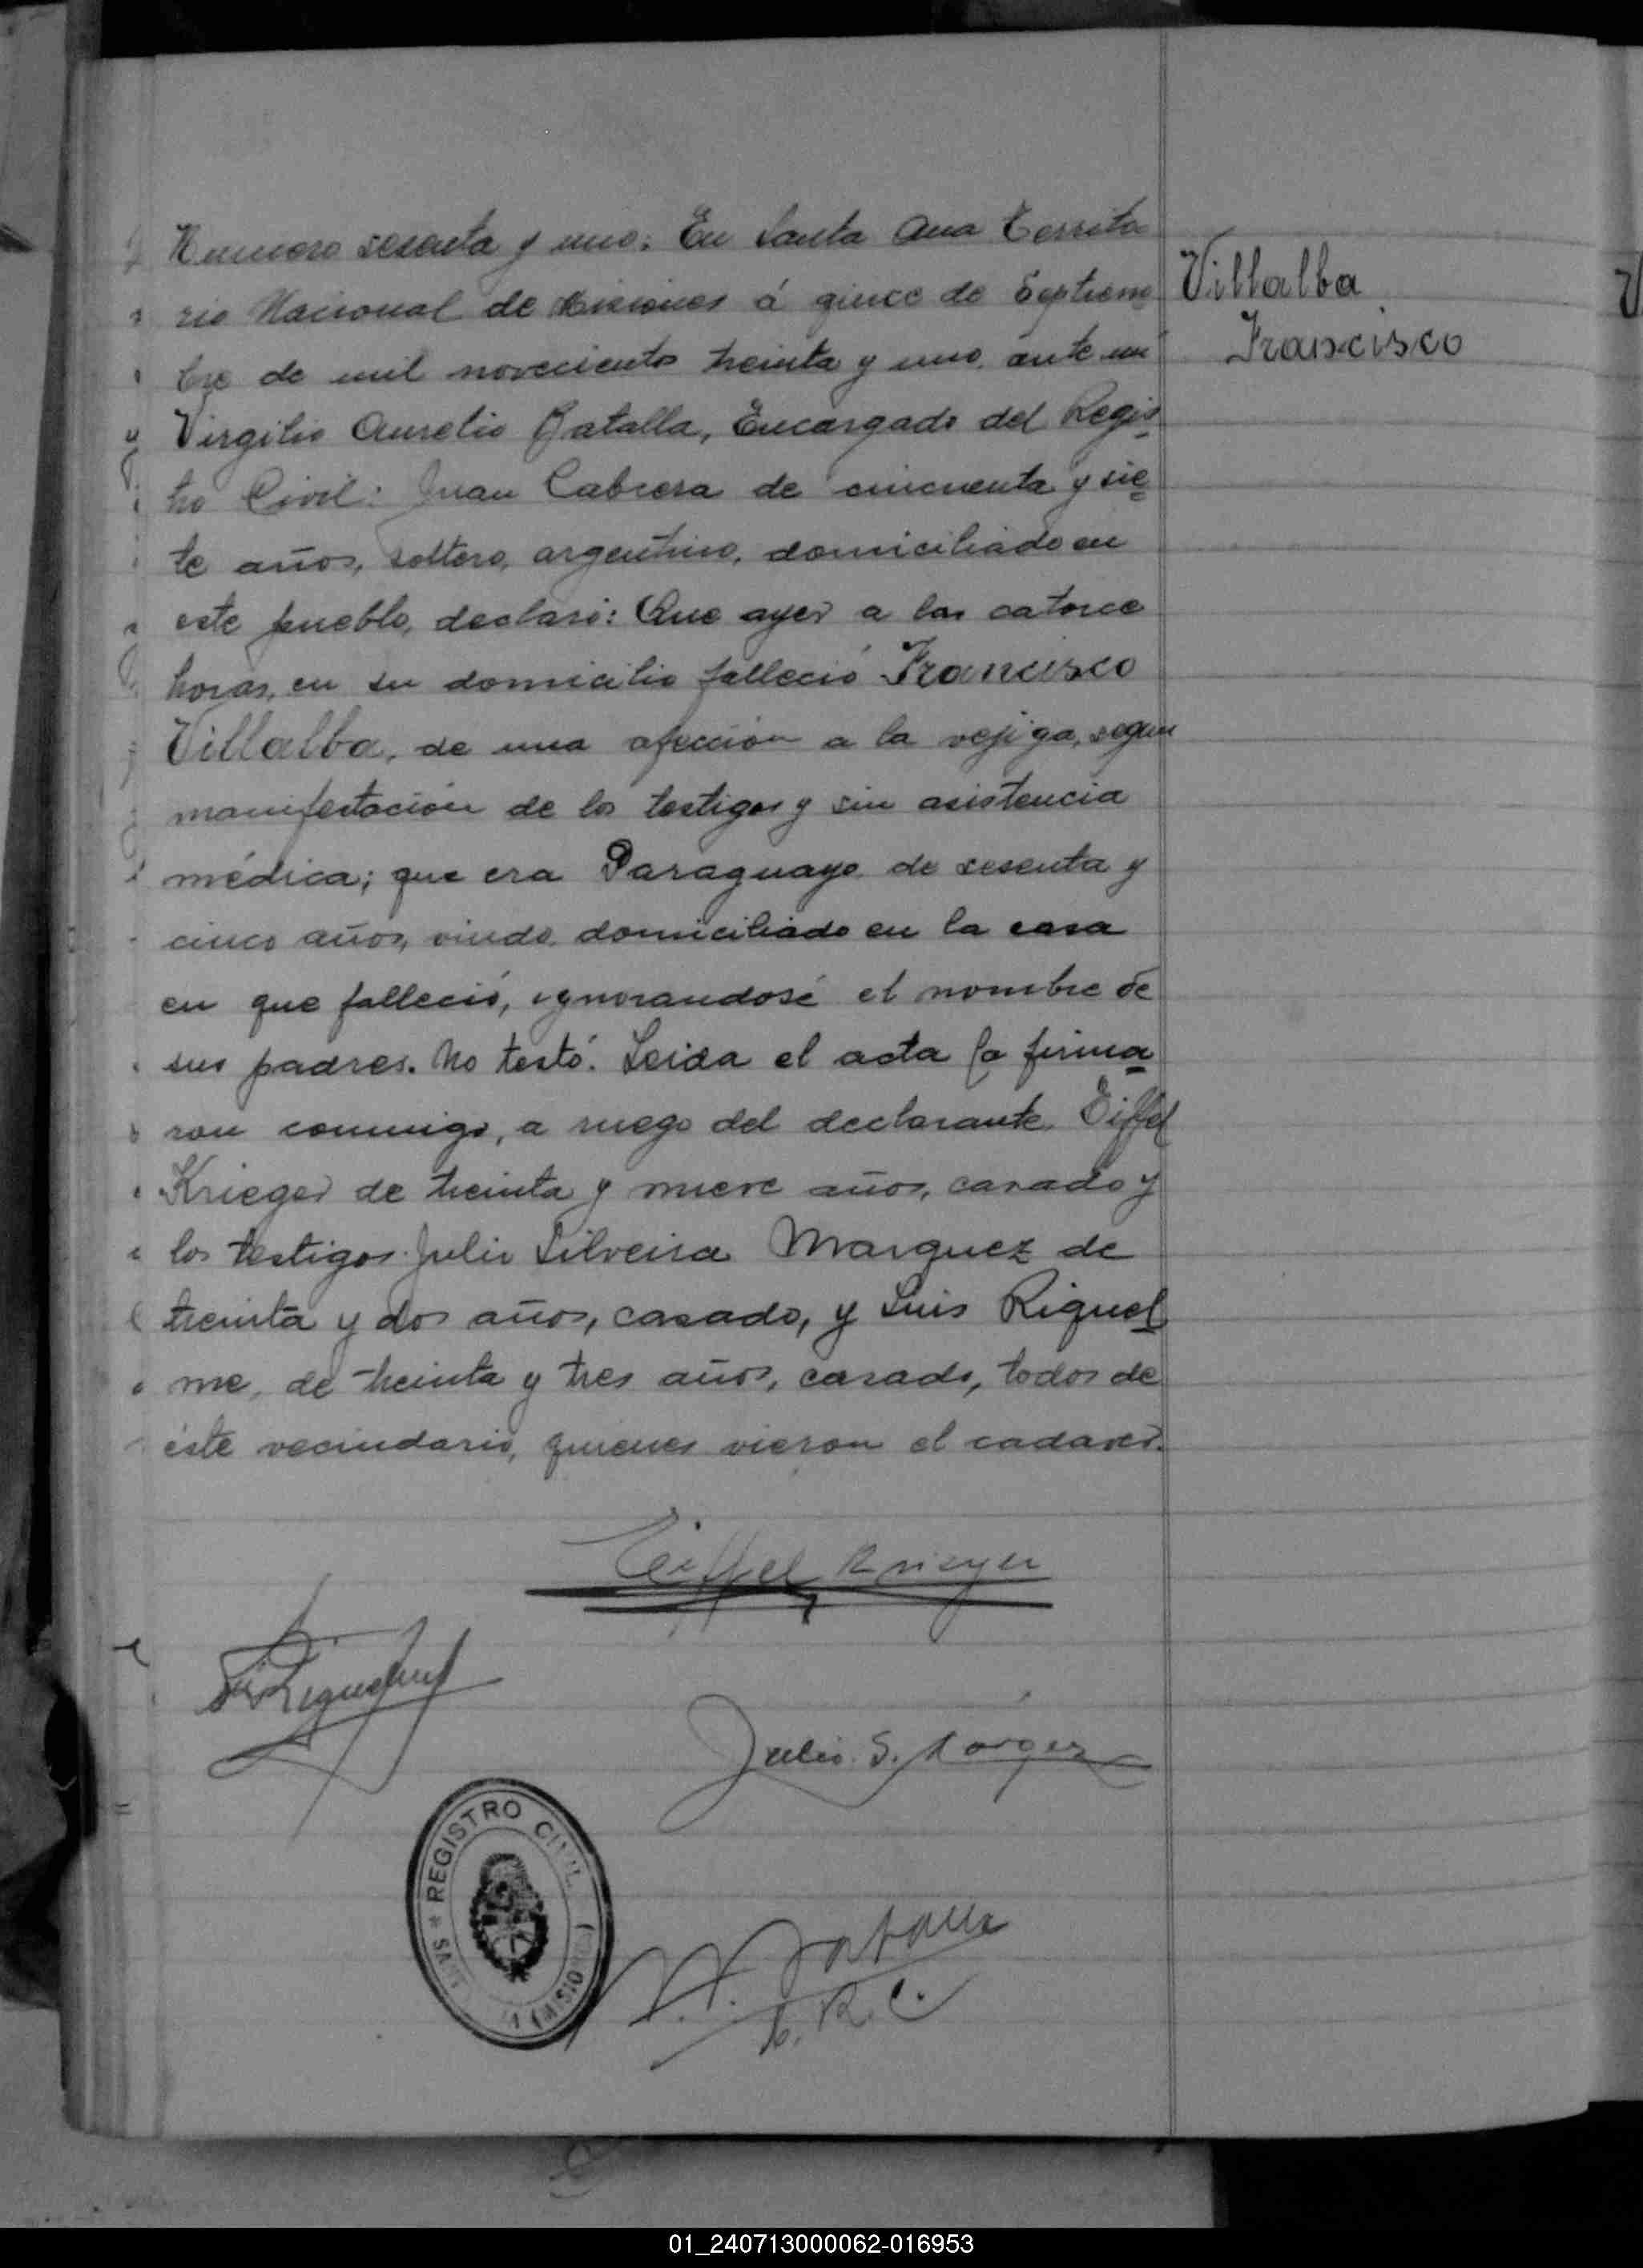 Numero sesenta y uno: En Santa Ana Territo
rio Nacional de Misiones á quince de Septiem
bre de mil novecientos treinta y uno, ante mi
Virgilio Aurelio Batalla, Encargado del Regis
tro Civil: Juan Cabrera de cincuenta y sie
te años, soltero, argentino, domiciliado en
este pueblo, declaró: Que ayer a las catorce
horas, en su domicilio falleció Francisco
Villalba, de una afección a la vejiga, segun
manifestación de los testigos y sin asistencia
médica; que era Paraguayo de sesenta y
cinco años, viudo, domiciliado en la casa
en que falleció, ignorandosé el nombre de
sus padres. No testó. Leida el acta la firma
ron conmigo, a ruego del declarante, Eiffel
Krieger de treinta y nueve años, casado y
los testigos Julio Silveira Marquez de
treinta y dos años, casado, y Luis Riquel
me, de treinta y tres años, casado, todos de
este vecindario, quienes vieron el cadaver.
Villalba
Francisco
Eiffel Krieger
Julio S. Márqez
REGISTRO CIVIL
(MISIONES)
E. R. C.
01_240713000062-016953